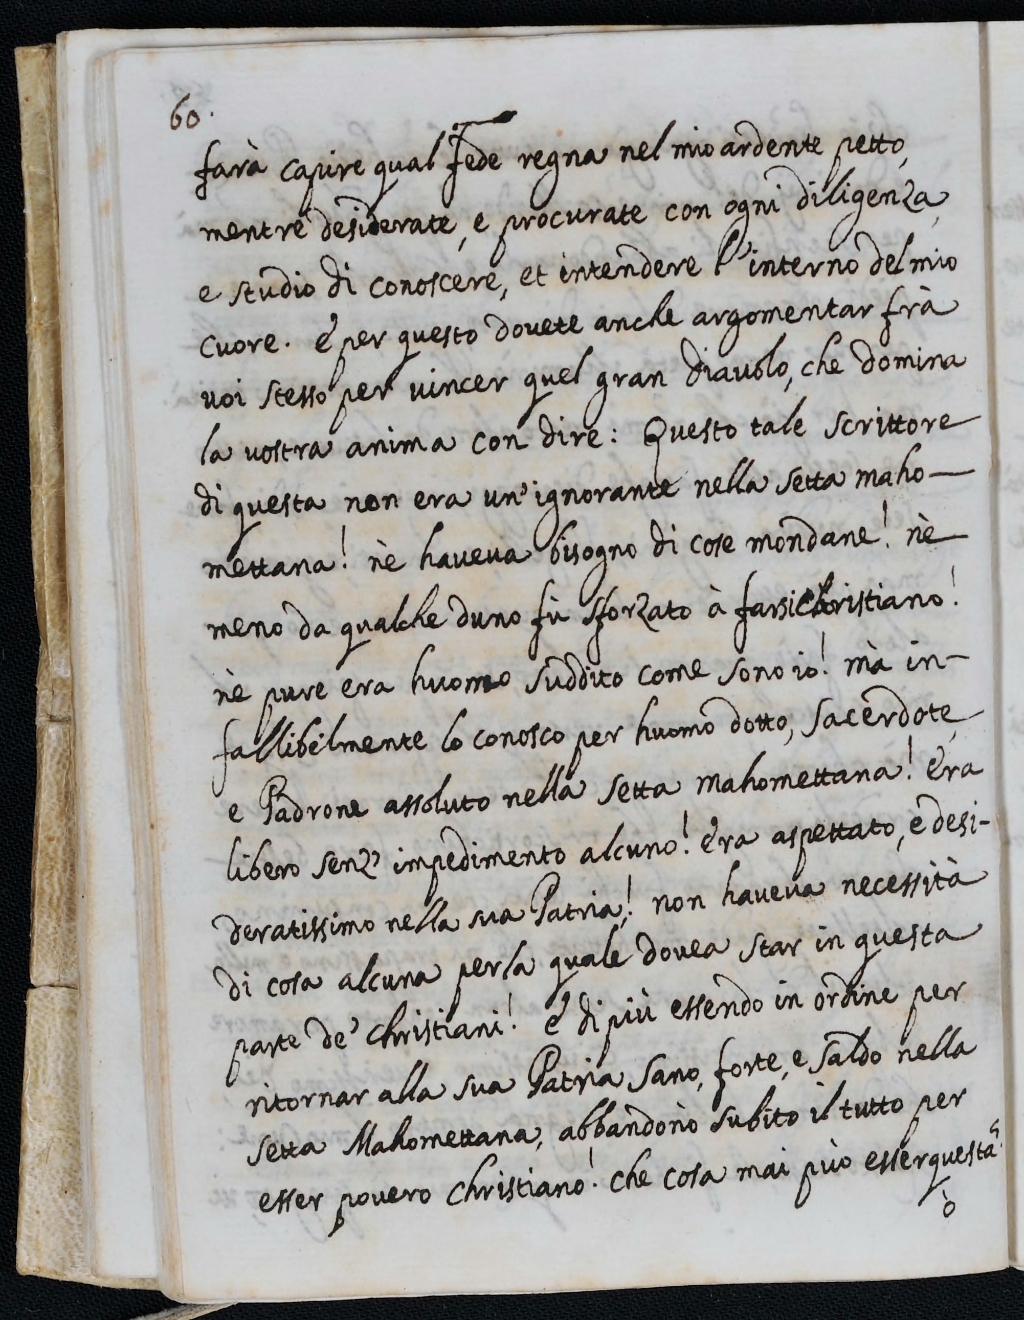 60.
farà capire qual fede regna nel mio ardente petto,
mentre desiderate, e procurate con ogni diligenza,
e studio di conoscere, et intendere l'interno del mio
cuore. e per questo dovete anche argomentar frà
voi stesso per vincer quel gran diavolo, che domina
la vostra anima con dire: Questo tale scrittore
di questa non era un'ignorante nella setta maho-
mettana! nè haveva bisogno di cose mondane! nè
meno da qualche duno fù sforzato à farsi Christiano!
nè pure era huomo suddito come sono io! mà in-
fallibilmente lo conosco per huomo dotto, sacerdote,
e Padrone assoluto nella setta mahomettana! era
libero senz' impedimento alcuno! era aspettato, e desi-
deratissimo nella sua Patria! non haveva necessità
di cosa alcuna per la quale dovea star in questa
parte de' christiani! e di più essendo in ordine per
ritornar alla sua Patria sano, forte, e saldo nella
setta Mahomettana, abbandonò subito il tutto per
esser povero christiano! che cosa mai può esser questa?
ò